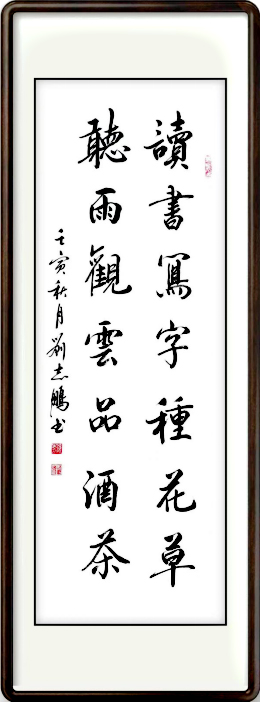 讀書寫字種花草
聽雨觀雲品酒茶
壬寅秋月劉志鵬书